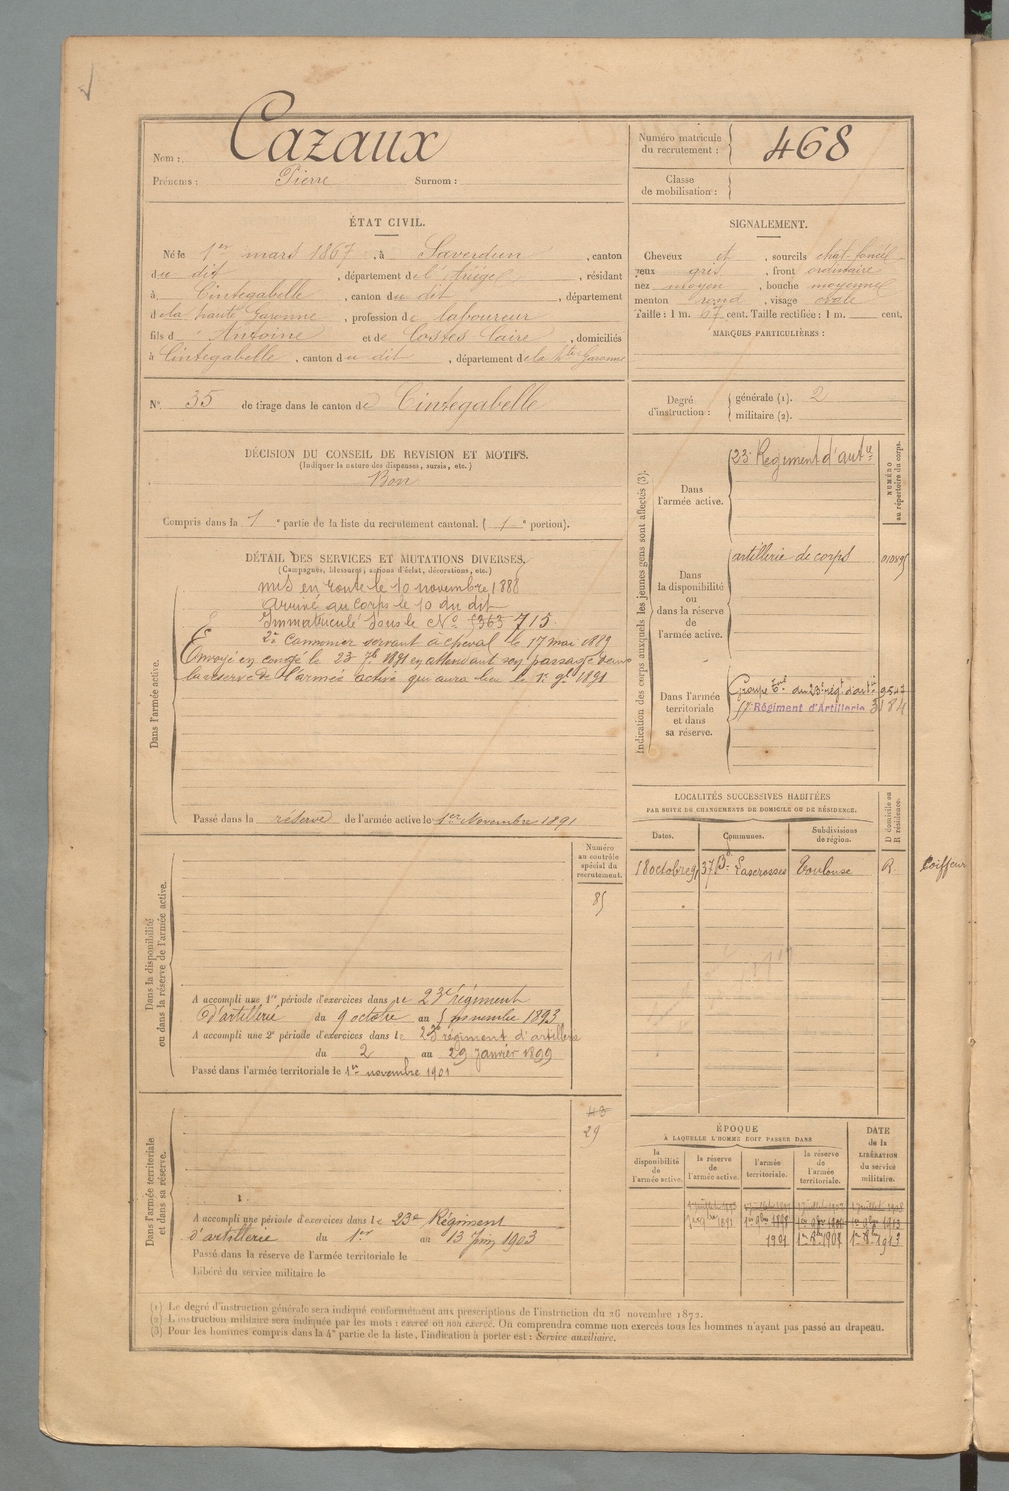 Nom : Cazaux
Prénoms : Pierre Surnom :
Numéro matricule du recrutement : 468
Classe de mobilisation :
ÉTAT CIVIL.
Né le 1er mars 1867, à Saverdun, canton
du dit, département de l'Ariège, résidant
à Cintegabelle, canton du dit, département
de la haute Garonne, profession de laboureur
fils d' Antoine et de Costes Claire, domiciliés
à Cintegabelle, canton du dit, département de la Hte Garonne
SIGNALEMENT.
Cheveux et, sourcils chat-foncé
yeux gris, front ordinaire
nez moyen, bouche moyenne
menton rond, visage ovale
Taille : 1 m. 67 cent. Taille rectifiée : 1 m. cent.
MARQUES PARTICULIÈRES :
N° 35 de tirage dans le canton de Cintegabelle
Degré d'instruction : générale (1). 2
militaire (2).
DÉCISION DU CONSEIL DE REVISION ET MOTIFS.
(Indiquer la nature des dispenses, sursis, etc.)
Bon
Compris dans la 1e partie de la liste du recrutement cantonal. (1e portion).
DÉTAIL DES SERVICES ET MUTATIONS DIVERSES.
(Campagnes, blessures, actions d'éclat, décorations, etc.)
Dans l'armée active.
mis en route le 10 novembre 1888
arrivé au corps le 10 du dit
Immatriculé sous le No 715
2e Canonnier servant à cheval le 17 mai 1889
Envoyé en congé le 23 7b 1891 en attendant son passage dans
la réserve de l'armée active qui aura lieu le 1er 9b 1891
Passé dans la réserve de l'armée active le 1er Novembre 1891
Indication des corps auxquels les jeunes gens sont affectés (3).
NUMÉRO au répertoire du corps.
Dans l'armée active. 23e Régiment d'artie
Dans la disponibilité ou dans la réserve de l'armée active. artillerie de corps
Dans l'armée territoriale et dans sa réserve. Groupe du 23e régt d'artie
Régiment d'Artillerie 3184
LOCALITÉS SUCCESSIVES HABITÉES
PAR SUITE DE CHANGEMENTS DE DOMICILE OU DE RÉSIDENCE.
Dates. Communes. Subdivisions de région. D domicile ou R résidence.
18 octobre 91 37 Bd Lascrosses Toulouse R. Coiffeur
Dans la disponibilité ou dans la réserve de l'armée active.
Numéro au contrôle spécial du recrutement.
85
A accompli une 1re période d'exercices dans le 23e régiment
d'artillerie du 9 octobre au 5 novembre 1893
A accompli une 2e période d'exercices dans le 23e régiment d'artillerie
du 2 au 29 Janvier 1899
Passé dans l'armée territoriale le 1er novembre 1901
Dans l'armée territoriale et dans sa réserve.
43
29
A accompli une période d'exercices dans le 23e Régiment
d'artillerie du 1er au 13 Juin 1903
Passé dans la réserve de l'armée territoriale le
Libéré du service militaire le
ÉPOQUE
À LAQUELLE L'HOMME DOIT PASSER DANS
la disponibilité de l'armée active. la réserve de l'armée active. l'armée territoriale. la réserve de l'armée territoriale.
DATE de la LIBÉRATION du service militaire.
1901 1907 1913
(1) Le degré d'instruction générale sera indiqué conformément aux prescriptions de l'instruction du 26 novembre 1872.
(2) L'instruction militaire sera indiquée par les mots : exercé ou non exercé. On comprendra comme non exercés tous les hommes n'ayant pas passé au drapeau.
(3) Pour les hommes compris dans la 4e partie de la liste, l'indication à porter est : Service auxiliaire.